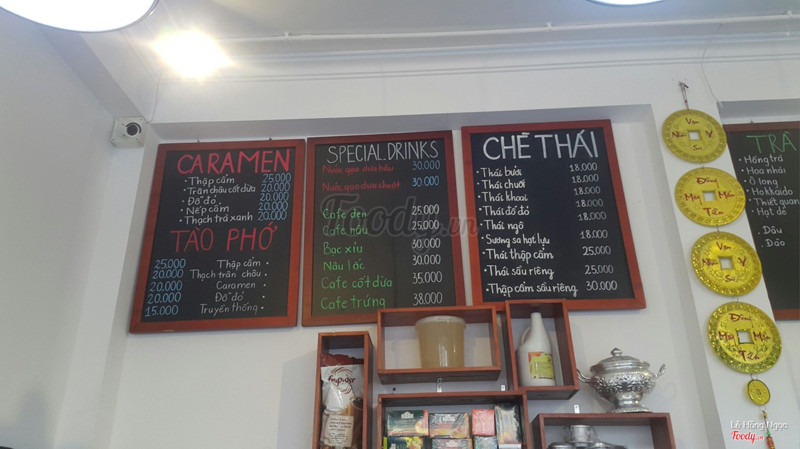 CARAMEN
• Thập cẩm 25.000
• Trân châu cốt dừa 20.000
• Đỗ đỏ 20.000
• Nếp cẩm 20.000
• Thạch trà xanh 20.000
TÀO PHỚ
25.000 Thập cẩm •
20.000 Thạch trân châu •
20.000 Caramen •
20.000 Đỗ đỏ •
15.000 Truyền thống •
SPECIAL.DRINKS
Nước gạo dưa hấu 30.000
Nước gạo dưa chuột 30.000
Cafe đen 25.000
Cafe nâu 25.000
Bạc xỉu 30.000
Nâu lắc 30.000
Cafe cốt dừa 35.000
Cafe trứng 38.000
CHÈ THÁI
• Thái bưởi 18.000
• Thái chuối 18.000
• Thái khoai 18.000
• Thái đỗ đỏ 18.000
• Thái ngô 18.000
• Sương sa hạt lựu 18.000
• Thái thập cẩm 25.000
• Thái sầu riêng 25.000
• Thập cẩm sầu riêng 30.000
TRÀ
• Hồng trà
• Hoa nhài
• Ô long
• Hokkaido
• Thiết quan
• Hạt dẻ
• Dâu
• Đào
Vạn
Như Ý
Sự
Đồng
May Mắn
Tiền
Vạn
Như Ý
Sự
Đồng
May Mắn
Tiền
Foody.vn
Lê Hồng Ngọc
Foody.vn